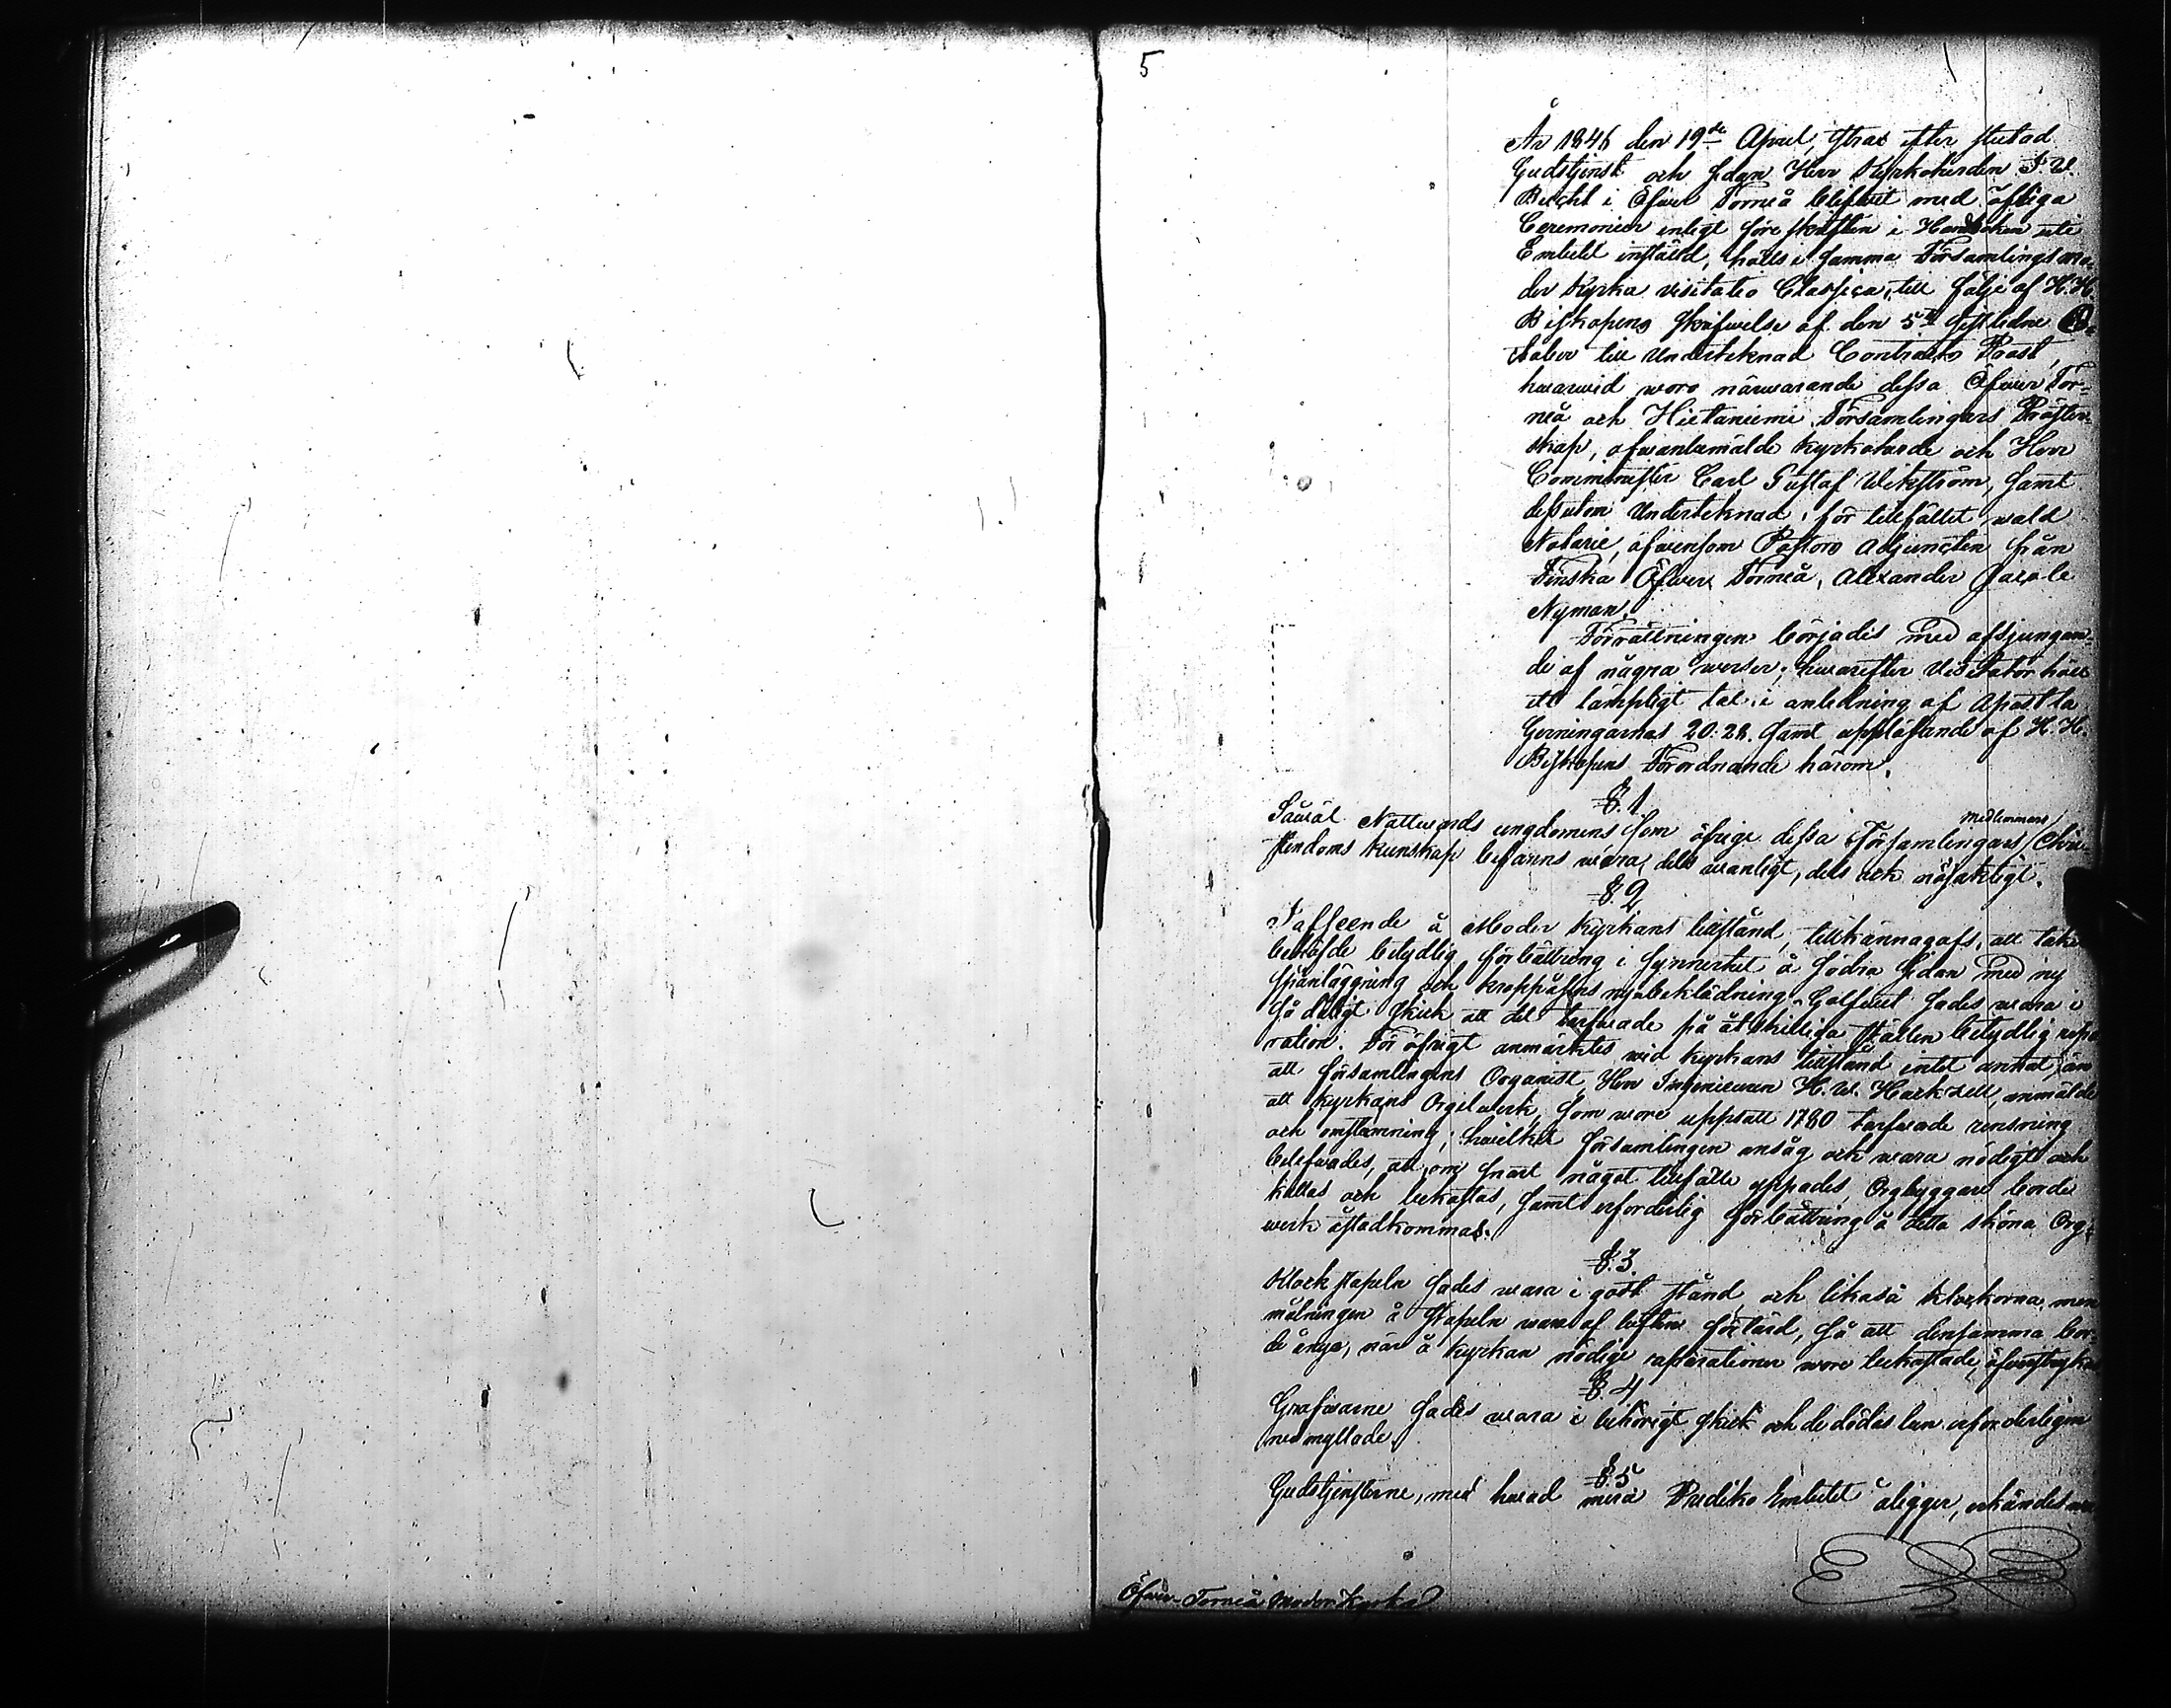 5
År 1846 den 19de April, strax efter slutad
Gudstjenst och sedan Herr Kyrkoherden
i Öfwer Torneå blifwit med öfliga
Ceremonier enligt föreskriften i Handboken uti
Embetet inställd, hölls i samma Församlings mo-
der Kyrka visitatio Classica, till följe af H. H.
Biskopens skrifwelse af den 5te sistlidne
till Undertecknad Contracts Prost,
hwarwid woro närwarande dessa Öfwer Tor-
neå och Hietaniemi Församlingars Prester-
skap, ofwanbemälde Kyrkoherde och Herr
Comminister Carl Gustaf Wikström, samt
dessutom Undertecknad, för tillfället wald
Notarie, äfwensom Pastors Adjuncten från
Finska Öfwer Torneå, Alexander
Nyman.
Förrättningen börjades med afsjungan-
de af några werser; hwarefter Visitator höll
ett lämpligt tal i anledning af Apostla
Gerningarnas 20:28. samt uppläsande af H. H.
Biskopens Förordnande härom.
§. 1
Såwäl Nattwards ungdomens som öfrige dessa Församlingars Medlemmars Chri-
stendoms kunskap befanns wara, dels wanligt, dels ock nöjaktigt.
§. 2
I afseende å Moder Kyrkans tillstånd, tillkännagafs, att taket
behöfde betydlig förbättring i synnerhet å södra sidan med ny
spånläggning och knoppåsens nya beklädning. Golfwet sades wara i
så dåligt skick att det tarfwade på åtskilliga ställen betydlig repa-
ration. För öfrigt anmärktes wid kyrkans tillstånd intet annat, än
att församlingens Organist, Herr Ingenieuren H. W. Hackzell, anmälde
att kyrkans Orgelwerk, som wore uppsatt 1780 tarfwade rensning
och omstämning; hwilket församlingen ansåg ock wara nödigt och
beslefwades, att, om snart något tillfälle yppades, Orgbyggare borde
kallas och bekostas, samt erforderlig förbättring å detta sköna Org-
werk åstadkommas.
§. 3
Klockstapeln sades wara i godt stånd och likaså klockorna, men
målningen å Stapeln ware af luften förtärd, så att densamma bor-
de ånyo, när å kyrkan nödige reparationer wore bekostade, öfwerstrykas
§. 4
Grafwarne sades wara i behörigt skick och de dödas ben erforderligen
nedmyllade.
§. 5
Gudstjensterne, med hwad mera Prediko Embetet åligger, erkändes
Öfwer Torneå Moder Kyrka